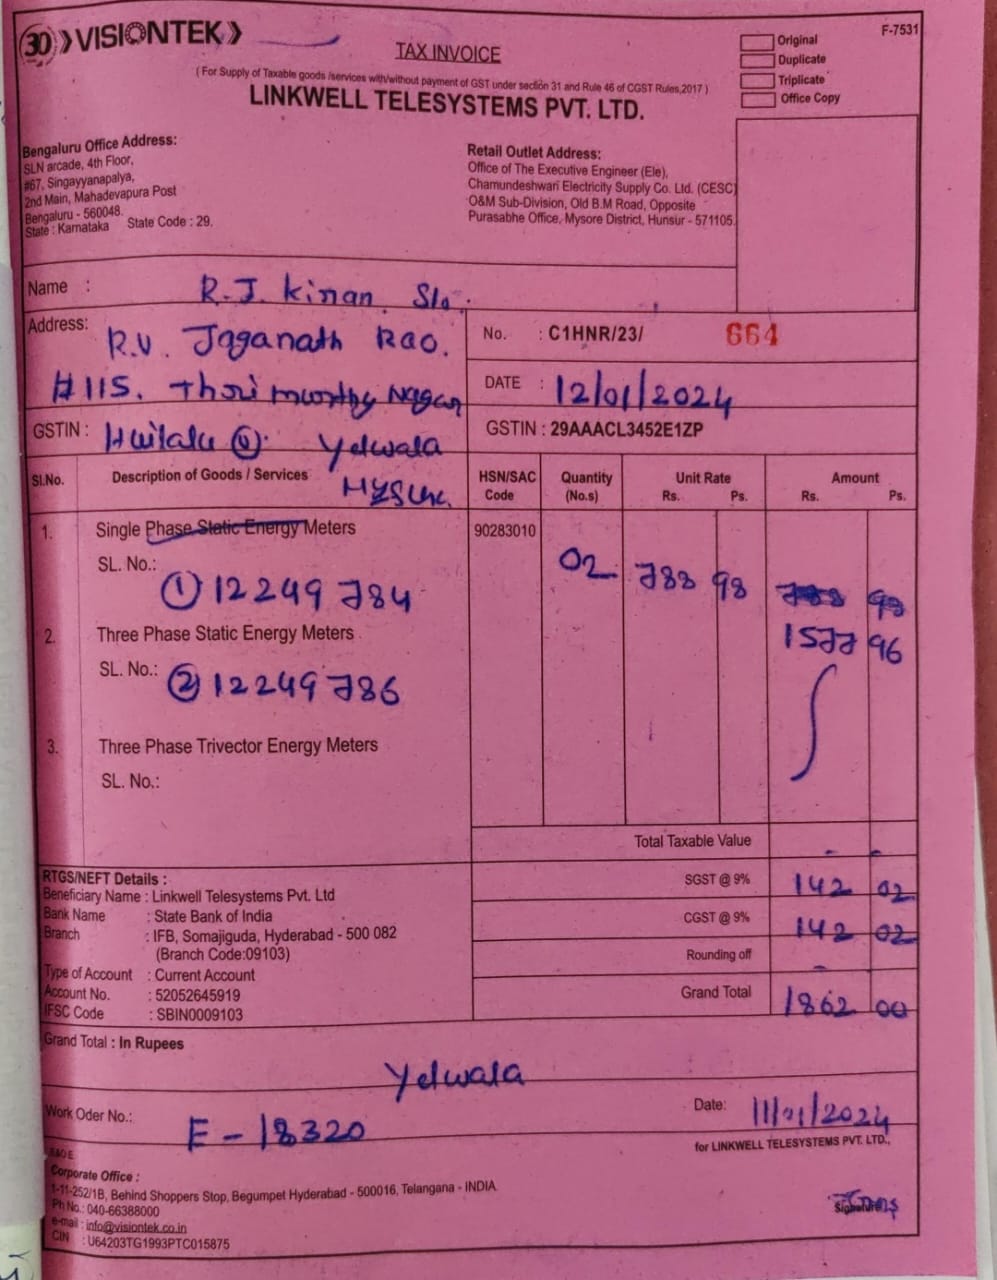 30 VISIONTEK
F-7531
TAX INVOICE
( For Supply of Taxable goods /services with/without payment of GST under section 31 and Rule 46 of CGST Rules,2017 )
LINKWELL TELESYSTEMS PVT. LTD.
Original
Duplicate
Triplicate
Office Copy
Bengaluru Office Address:
SLN arcade, 4th Floor,
#67, Singayyanapalya,
2nd Main, Mahadevapura Post
Bengaluru - 560048.
State : Karnataka State Code : 29.
Retail Outlet Address:
Office of The Executive Engineer (Ele),
Chamundeshwari Electricity Supply Co. Ltd. (CESC)
O&M Sub-Division, Old B.M Road, Opposite
Purasabhe Office, Mysore District, Hunsur - 571105.
Name : R.J. Kiran S/o.
Address: R.V. Jaganath Rao.
#115. Nagar
No. : C1HNR/23/ 664
DATE : 12/01/2024
GSTIN : @ Yelwala
GSTIN : 29AAACL3452E1ZP
Sl.No. Description of Goods / Services HSN/SAC Code Quantity (No.s) Unit Rate Rs. Ps. Amount Rs. Ps.
1. Single Phase Static Energy Meters 90283010
SL. No.: ① 12249784 02 788 98 788 98
2. Three Phase Static Energy Meters 1577 96
SL. No.: ② 12249786
3. Three Phase Trivector Energy Meters
SL. No.:
Total Taxable Value - -
SGST @ 9% 142 02
CGST @ 9% 142 02
Rounding off -
Grand Total 1862 00
RTGS/NEFT Details :
Beneficiary Name : Linkwell Telesystems Pvt. Ltd
Bank Name : State Bank of India
Branch : IFB, Somajiguda, Hyderabad - 500 082
(Branch Code:09103)
Type of Account : Current Account
Account No. : 52052645919
IFSC Code : SBIN0009103
Grand Total : In Rupees
Yelwala
Work Oder No.: E - 18320
Date: 11/01/2024
for LINKWELL TELESYSTEMS PVT. LTD.,
Corporate Office :
1-11-252/1B, Behind Shoppers Stop, Begumpet Hyderabad - 500016, Telangana - INDIA
Ph No.: 040-66388000
e-mail : info@visiontek.co.in
CIN : U64203TG1993PTC015875
Signature